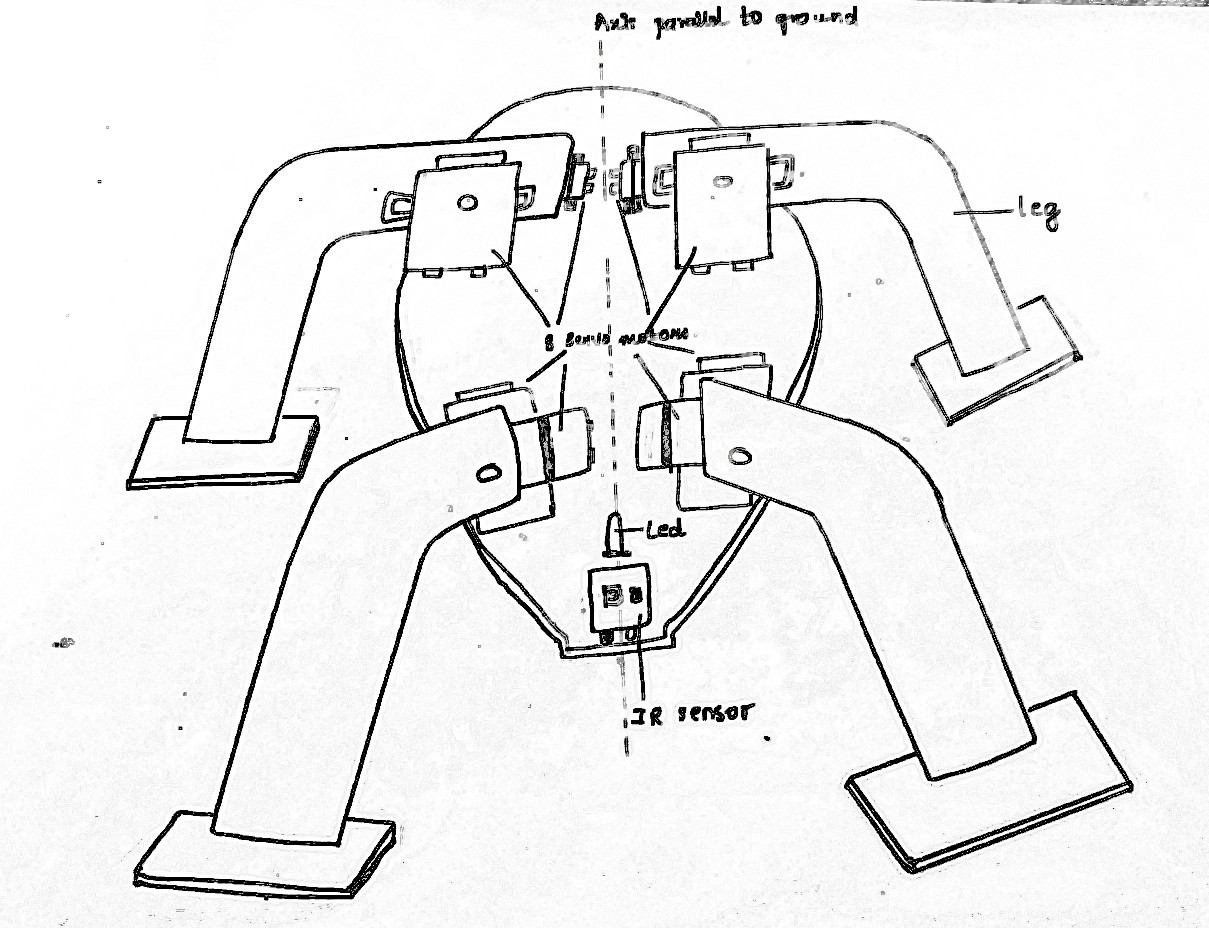 Axis parallel to ground
leg
8 servo motors
Led
IR sensor